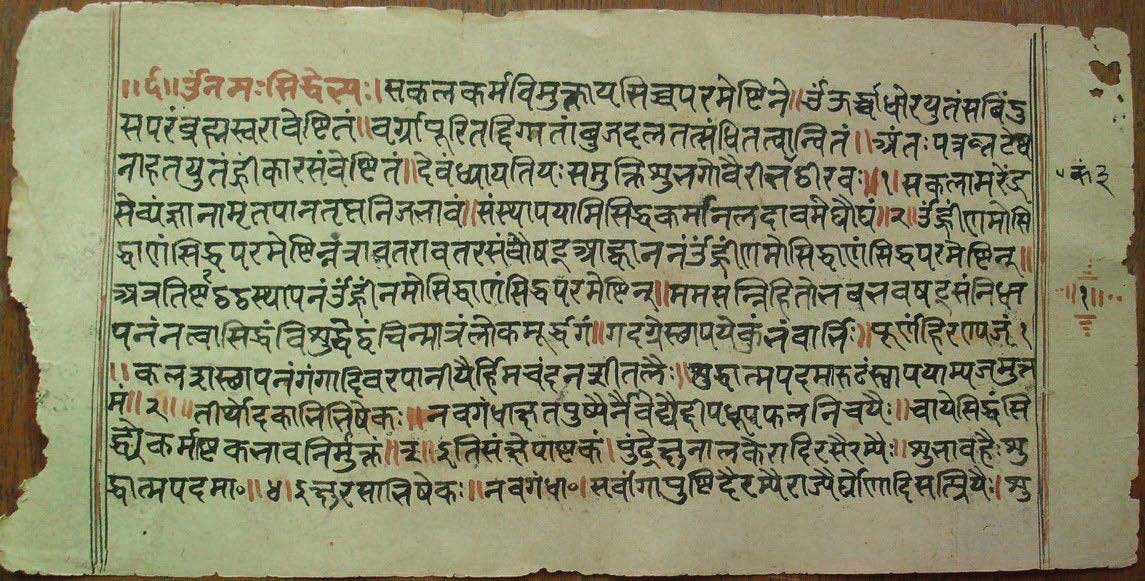 ॥र्द॥ ॐनमःसिद्धेभ्यः।सकलकर्मविमुक्तायसिद्धपरमेष्टिने॥ॐऊर्द्ध्वाधोरयुतंसबिंदु
सपरंब्रह्मस्वरावेष्टितं॥वर्गापूरितदिग्गतांबुजदलंतत्संधितत्वान्वितं॥अंतःपत्रतटेष्व
नाहतयुतंह्रींकारसंवेष्टितं॥देवंध्यायतियःसमुक्तिशुभगोवैरीभकंठीरवः॥१॥सकलामरेंद्र
सेव्यंज्ञानामृतपानतृप्तनिजभावं॥संस्थापयामिसिद्धकर्मानलदावमेघौघं॥२॥ॐह्रींणमोसि
द्धाणंसिद्धपरमेष्टिन्नत्रावतरावतरसंवौषट्आह्वाननंॐह्रींणमोसिद्धाणंसिद्धपरमेष्टिन्॥
अत्रतिष्ठ२ठठस्थापनंॐह्रींनमोसिद्धाणंसिद्धपरमेष्टिन्॥ममसन्निहितोभवभववषट्संनिधा
पनंनत्वासिद्धंविशुद्धेद्धंचिन्मात्रंलोकमूर्द्धगं॥गदग्रेस्थापयेकुंभंवार्भिः॥पूर्णंहिरण्पजं१
॥कलशस्थापनंगंगादिवरपानीयैर्हिमचंदनशीतलैः॥शुद्धात्मपदमारूढंस्त्रापयाम्यजमुत्त
मं॥२॥तीर्थोदकाभिषेकः॥नवगंधाक्षतपुष्पैर्नैवेद्यैर्द्दीपधूपफलनिचयैः॥चायेसिद्धंसि
द्ध्यैकर्माष्टकभावनिर्मुक्तं॥३॥इतिसंक्षेपाष्टकं।पुंद्रेक्षुनालकेरादिरसैरम्यैः॥शुभावहैःशु
द्धात्मपदमा०॥४॥इक्षुरसाभिषेकः॥नवगंधा०।सर्वांगापुष्टिदैरम्यैराज्यैर्घ्राणादिसत्प्रियैः।शु
कं३
॥१॥